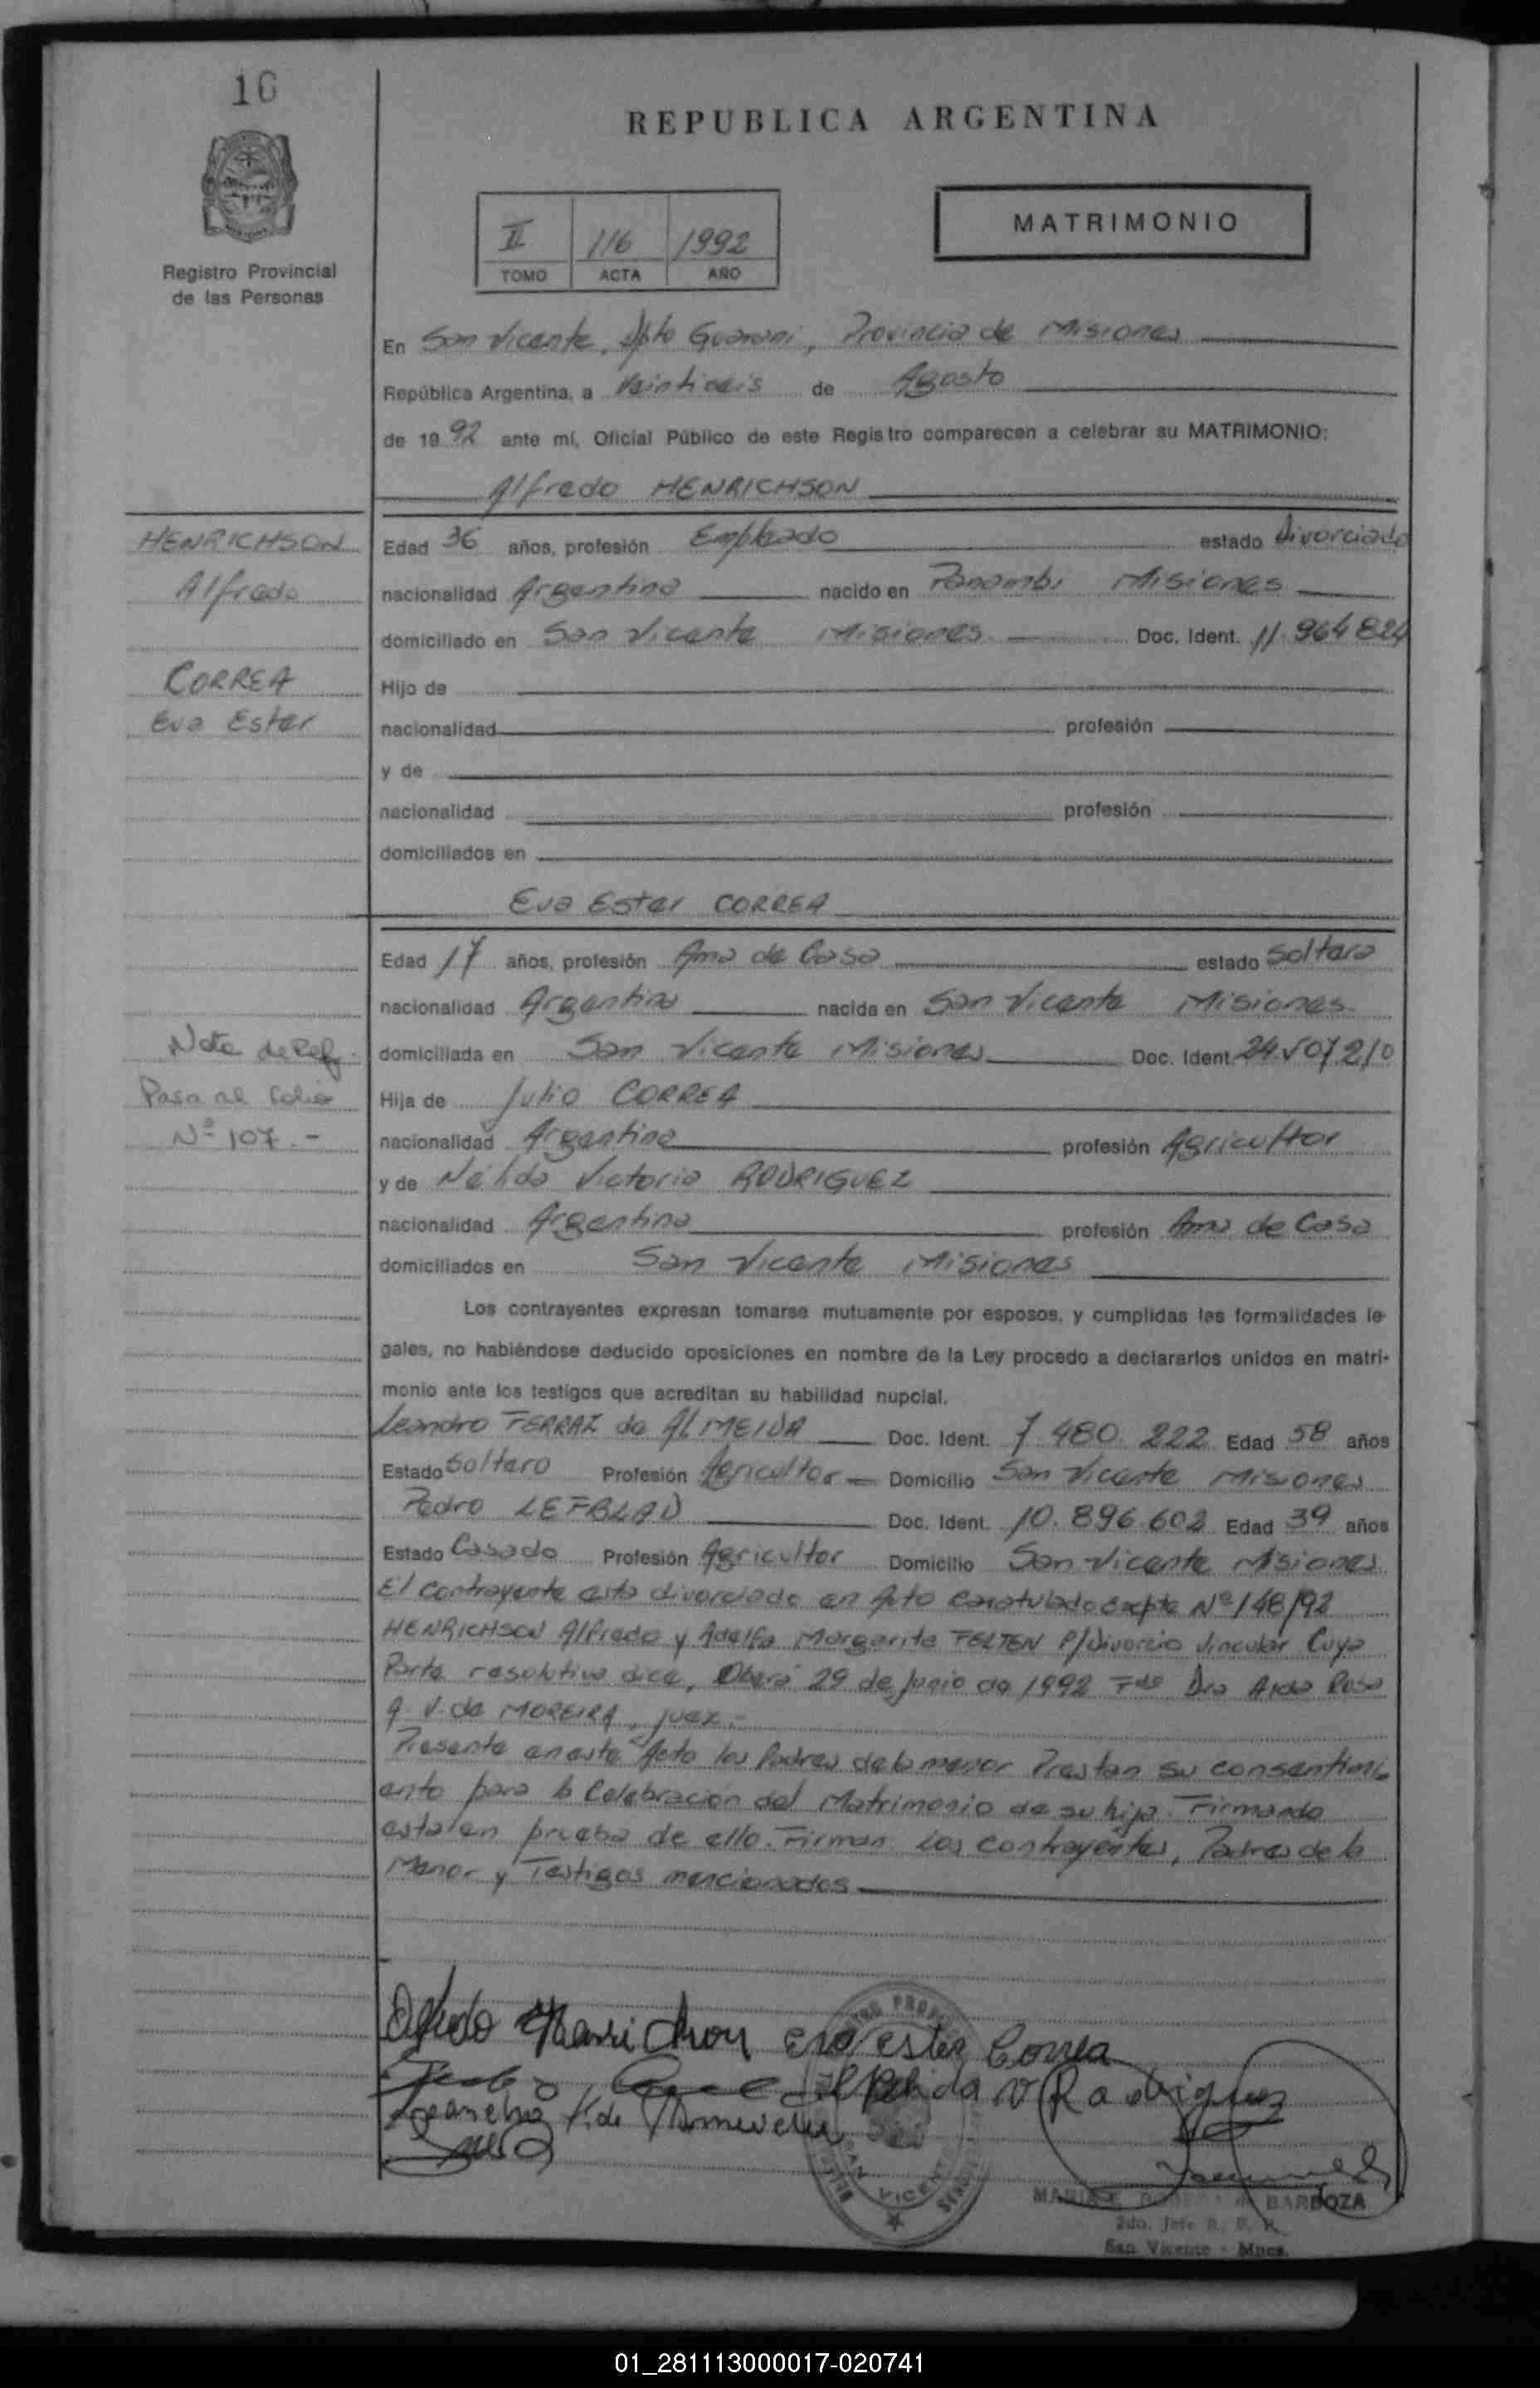 16
REPUBLICA ARGENTINA
Registro Provincial
de las Personas
II 116 1992
TOMO ACTA AÑO
MATRIMONIO
En San Vicente, Dpto Guarani, Provincia de Misiones
República Argentina, a Veintiseis de Agosto
de 19 92 ante mí, Oficial Público de este Registro comparecen a celebrar su MATRIMONIO:
Alfredo HENRICHSON
HENRICHSON
Alfredo
CORREA
Eva Ester
Edad 36 años, profesión Empleado estado Divorciado
nacionalidad Argentina nacido en Panambi Misiones
domiciliado en San Vicente Misiones Doc. Ident. 11.964824
Hijo de
nacionalidad profesión
y de
nacionalidad profesión
domiciliados en
Eva Ester CORREA
Edad 17 años, profesión Ama de Casa estado Soltera
nacionalidad Argentina nacida en San Vicente Misiones
domiciliada en San Vicente Misiones Doc. Ident. 24.507210
Nota de Ref.
Pasa al folio
Nº 107.-
Hija de Julio CORREA
nacionalidad Argentina profesión Agricultor
y de Nélida Victoria RODRIGUEZ
nacionalidad Argentina profesión Ama de Casa
domiciliados en San Vicente Misiones
Los contrayentes expresan tomarse mutuamente por esposos, y cumplidas las formalidades le-
gales, no habiéndose deducido oposiciones en nombre de la Ley procedo a declararlos unidos en matri-
monio ante los testigos que acreditan su habilidad nupcial.
Leandro FERRAZ de ALMEIDA Doc. Ident. 7.480.222 Edad 58 años
Estado Soltero Profesión Agricultor Domicilio San Vicente Misiones
Pedro LEFBLAD Doc. Ident. 10.896.602 Edad 39 años
Estado Casado Profesión Agricultor Domicilio San Vicente Misiones
El contrayente esta divorciado en Auto Caratulado Expte Nº 148/92
HENRICHSON Alfredo y Adelfa Margarita FELTEN P/Divorcio Vincular Cuya
Parte resolutiva dice, Oberá 29 de Junio de 1992 Fdo Dra Aida Rosa
A. V. de MOREIRA, juez.-
Presente en este Acto los Padres de la menor Prestan su consentimi
ento para la Celebración del Matrimonio de su hija. Firmando
estalen prueba de ello. Firman los contrayentes, Padres de la
Menor y Testigos mencionados
Eva ester Correa
Nelida V Rodriguez
SAN VICENTE
BARBOZA
2do. Jefe R. P. P.
San Vicente - Mnes.
01_281113000017-020741